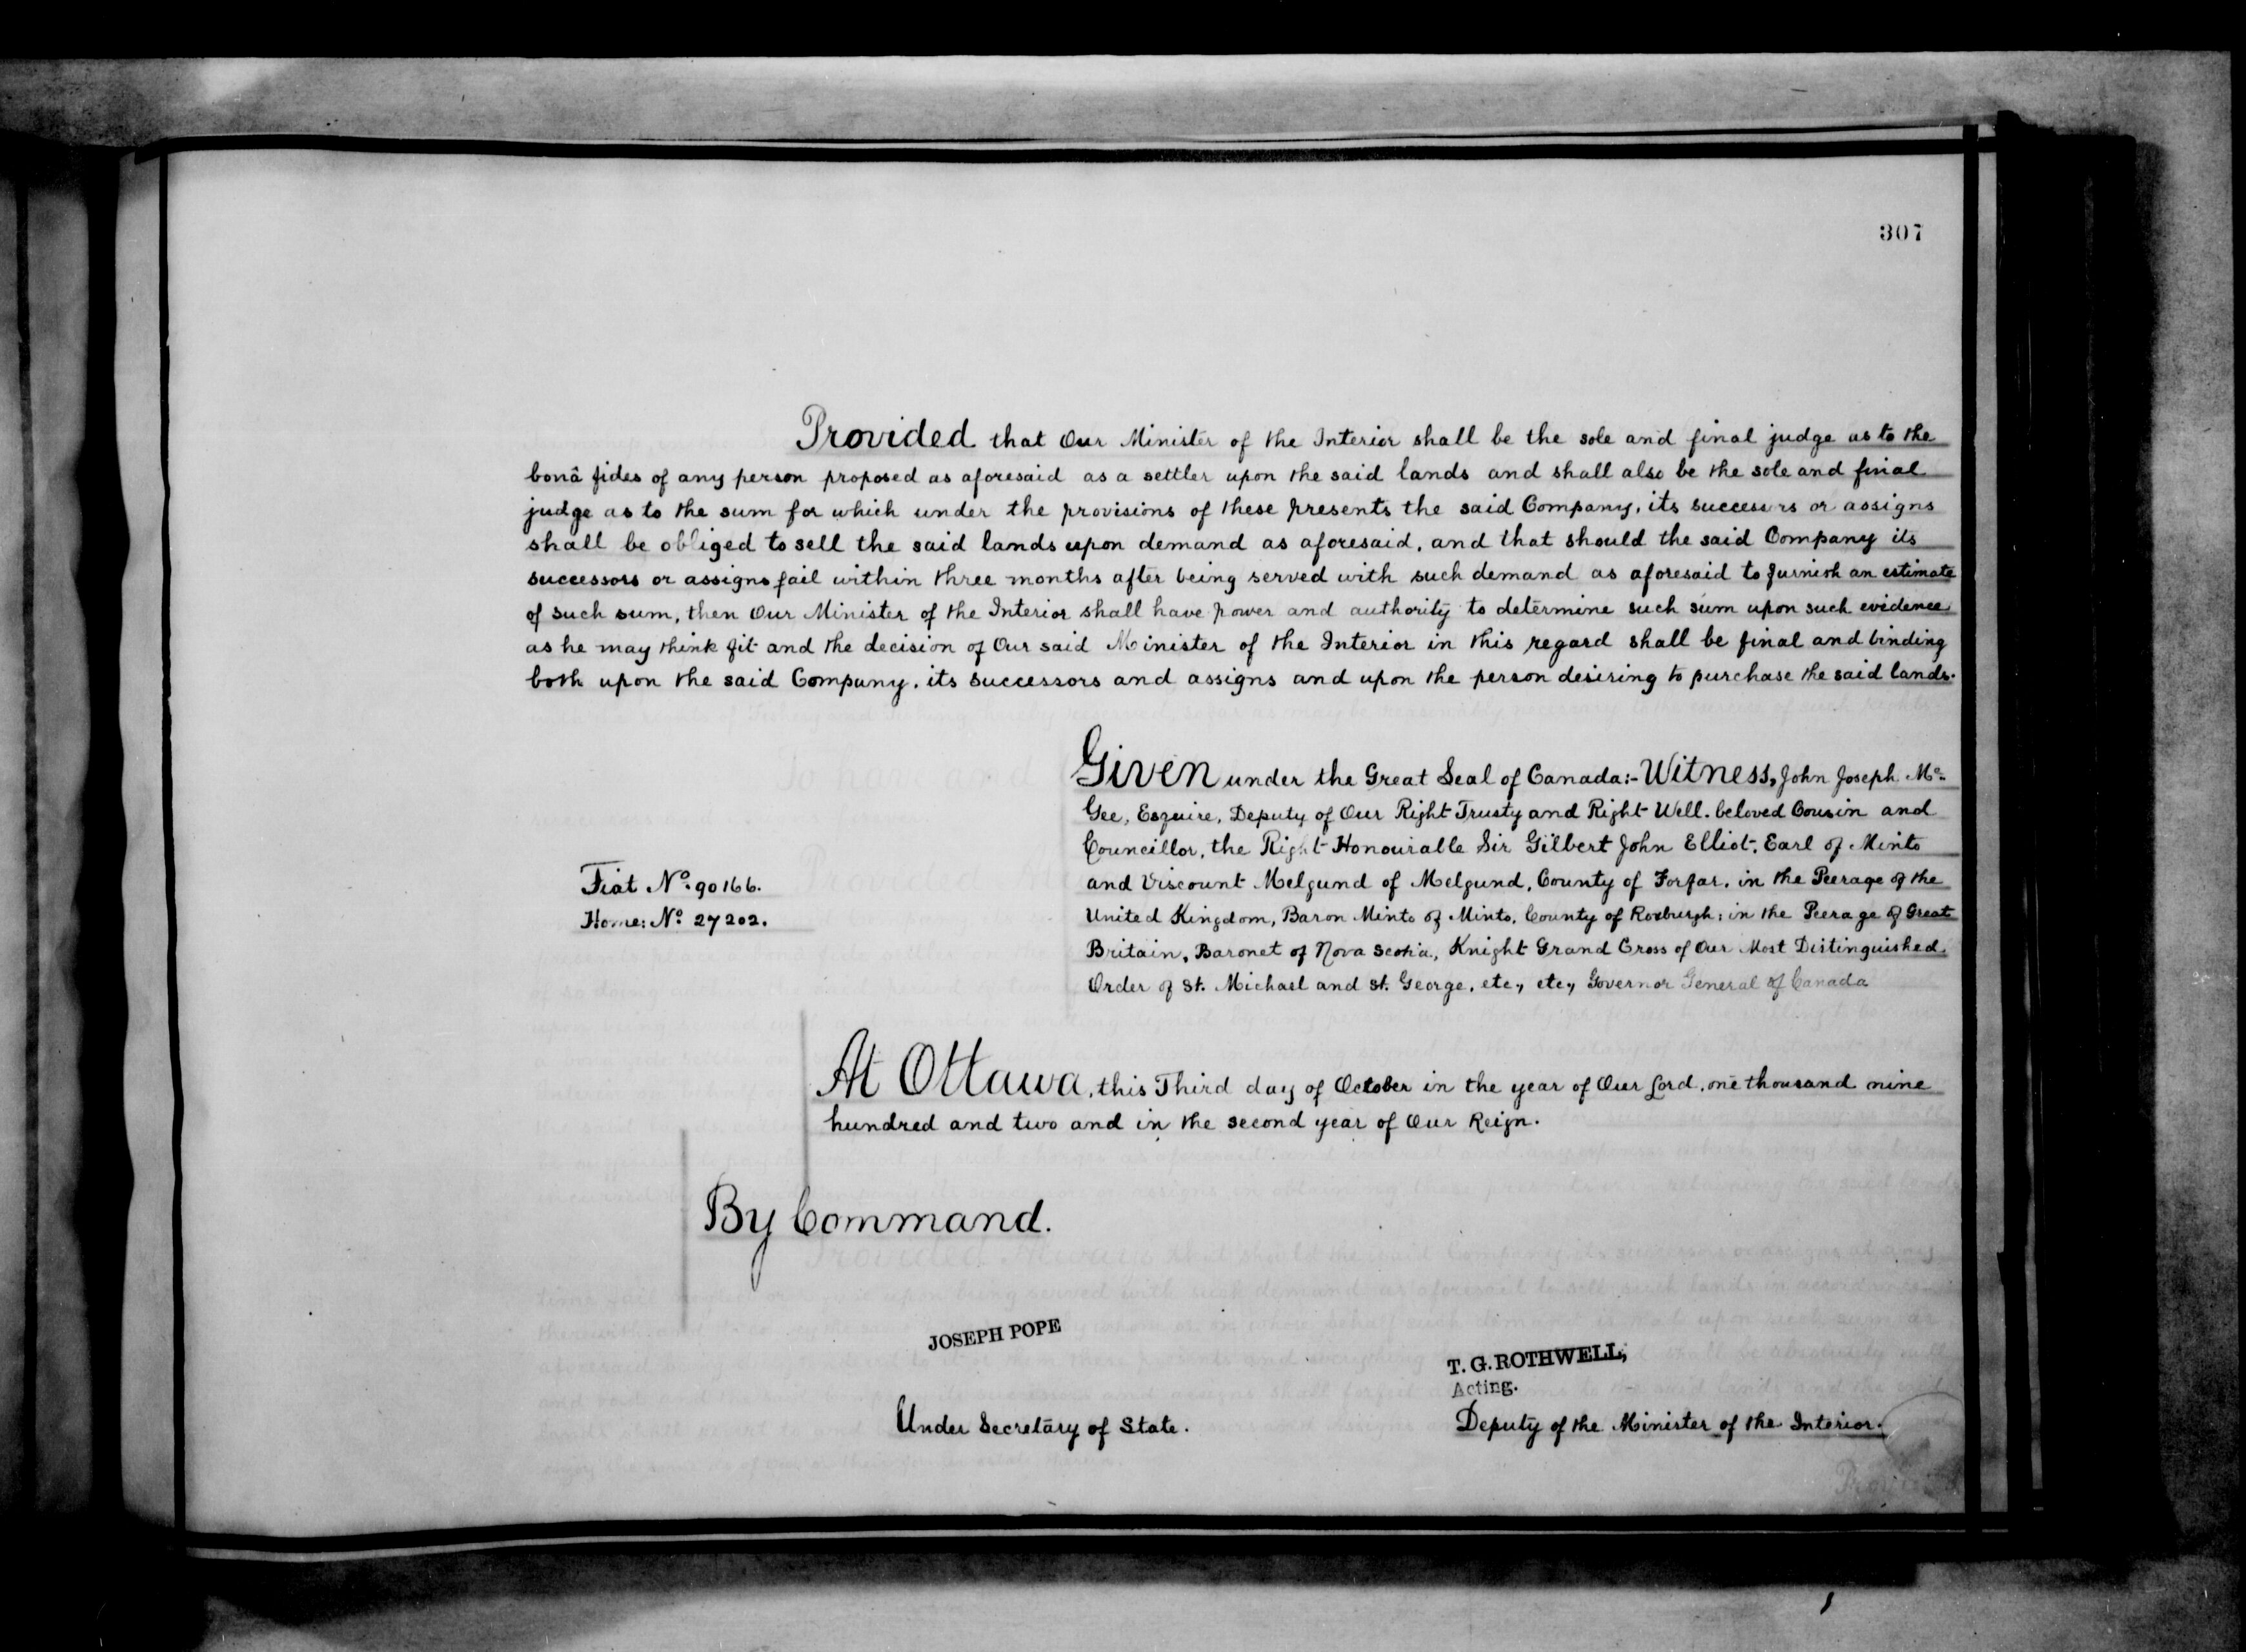 307
Provided that Our Minister of the Interior shall be the sole and final judge as to the
bonâ fides of any person proposed as aforesaid as a settler upon the said lands and shall also be the sole and final
judge as to the sum for which under the provisions of these presents the said Company, its successors or assigns
shall be obliged to sell the said lands upon demand as aforesaid, and that should the said Company its
successors or assigns fail within three months after being served with such demand as aforesaid to furnish an estimate
of such sum, then Our Minister of the Interior shall have power and authority to determine such sum upon such evidence
as he may think fit and the decision of Our said Minister of the Interior in this regard shall be final and binding
both upon the said Company, its successors and assigns and upon the person desiring to purchase the said lands.
Given under the Great Seal of Canada:- Witness, John Joseph Mc-
Gee, Esquire, Deputy of Our Right Trusty and Right Well-beloved Cousin and
Councillor, the Right Honourable Sir Gilbert John Elliot, Earl of Minto
and Viscount Melgund of Melgund, County of Forfar, in the Peerage of the
United Kingdom, Baron Minto of Minto, County of Roxburgh; in the Peerage of Great
Britain, Baronet of Nova Scotia, Knight Grand Cross of Our Most Distinguished
Order of St. Michael and St. George, etc., etc., Governor General of Canada
Fiat No. 90166.
Home: No 27202.
At Ottawa, this Third day of October in the year of Our Lord, one thousand nine
hundred and two and in the second year of Our Reign.
By Command.
JOSEPH POPE
Under Secretary of State.
T. G. ROTHWELL,
Acting.
Deputy of the Minister of the Interior.